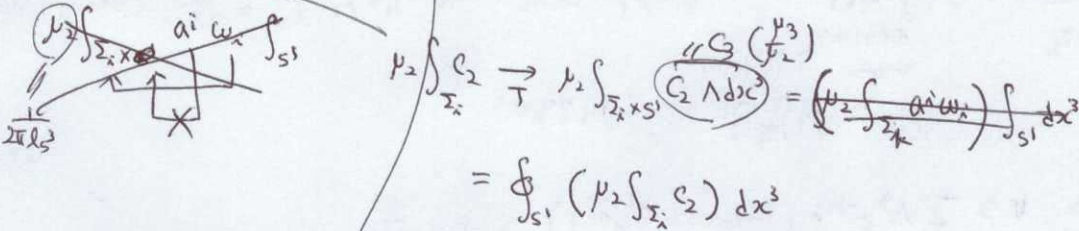 μ₂ ∫_{Σᵢ×} aⁱ ωᵢ ∫_{S¹}
1/(2π l_s³)
μ₂ ∫_{Σᵢ} C₂ →_T μ₂ ∫_{Σᵢ×S¹} C₂ ∧ dx³ = (μ₂ ∫_{Σₖ} aⁱ ωᵢ) ∫_{S¹} dx³
" C₃ (μ₃/μ₂)
= ∮_{S¹} (μ₂ ∫_{Σᵢ} C₂) dx³